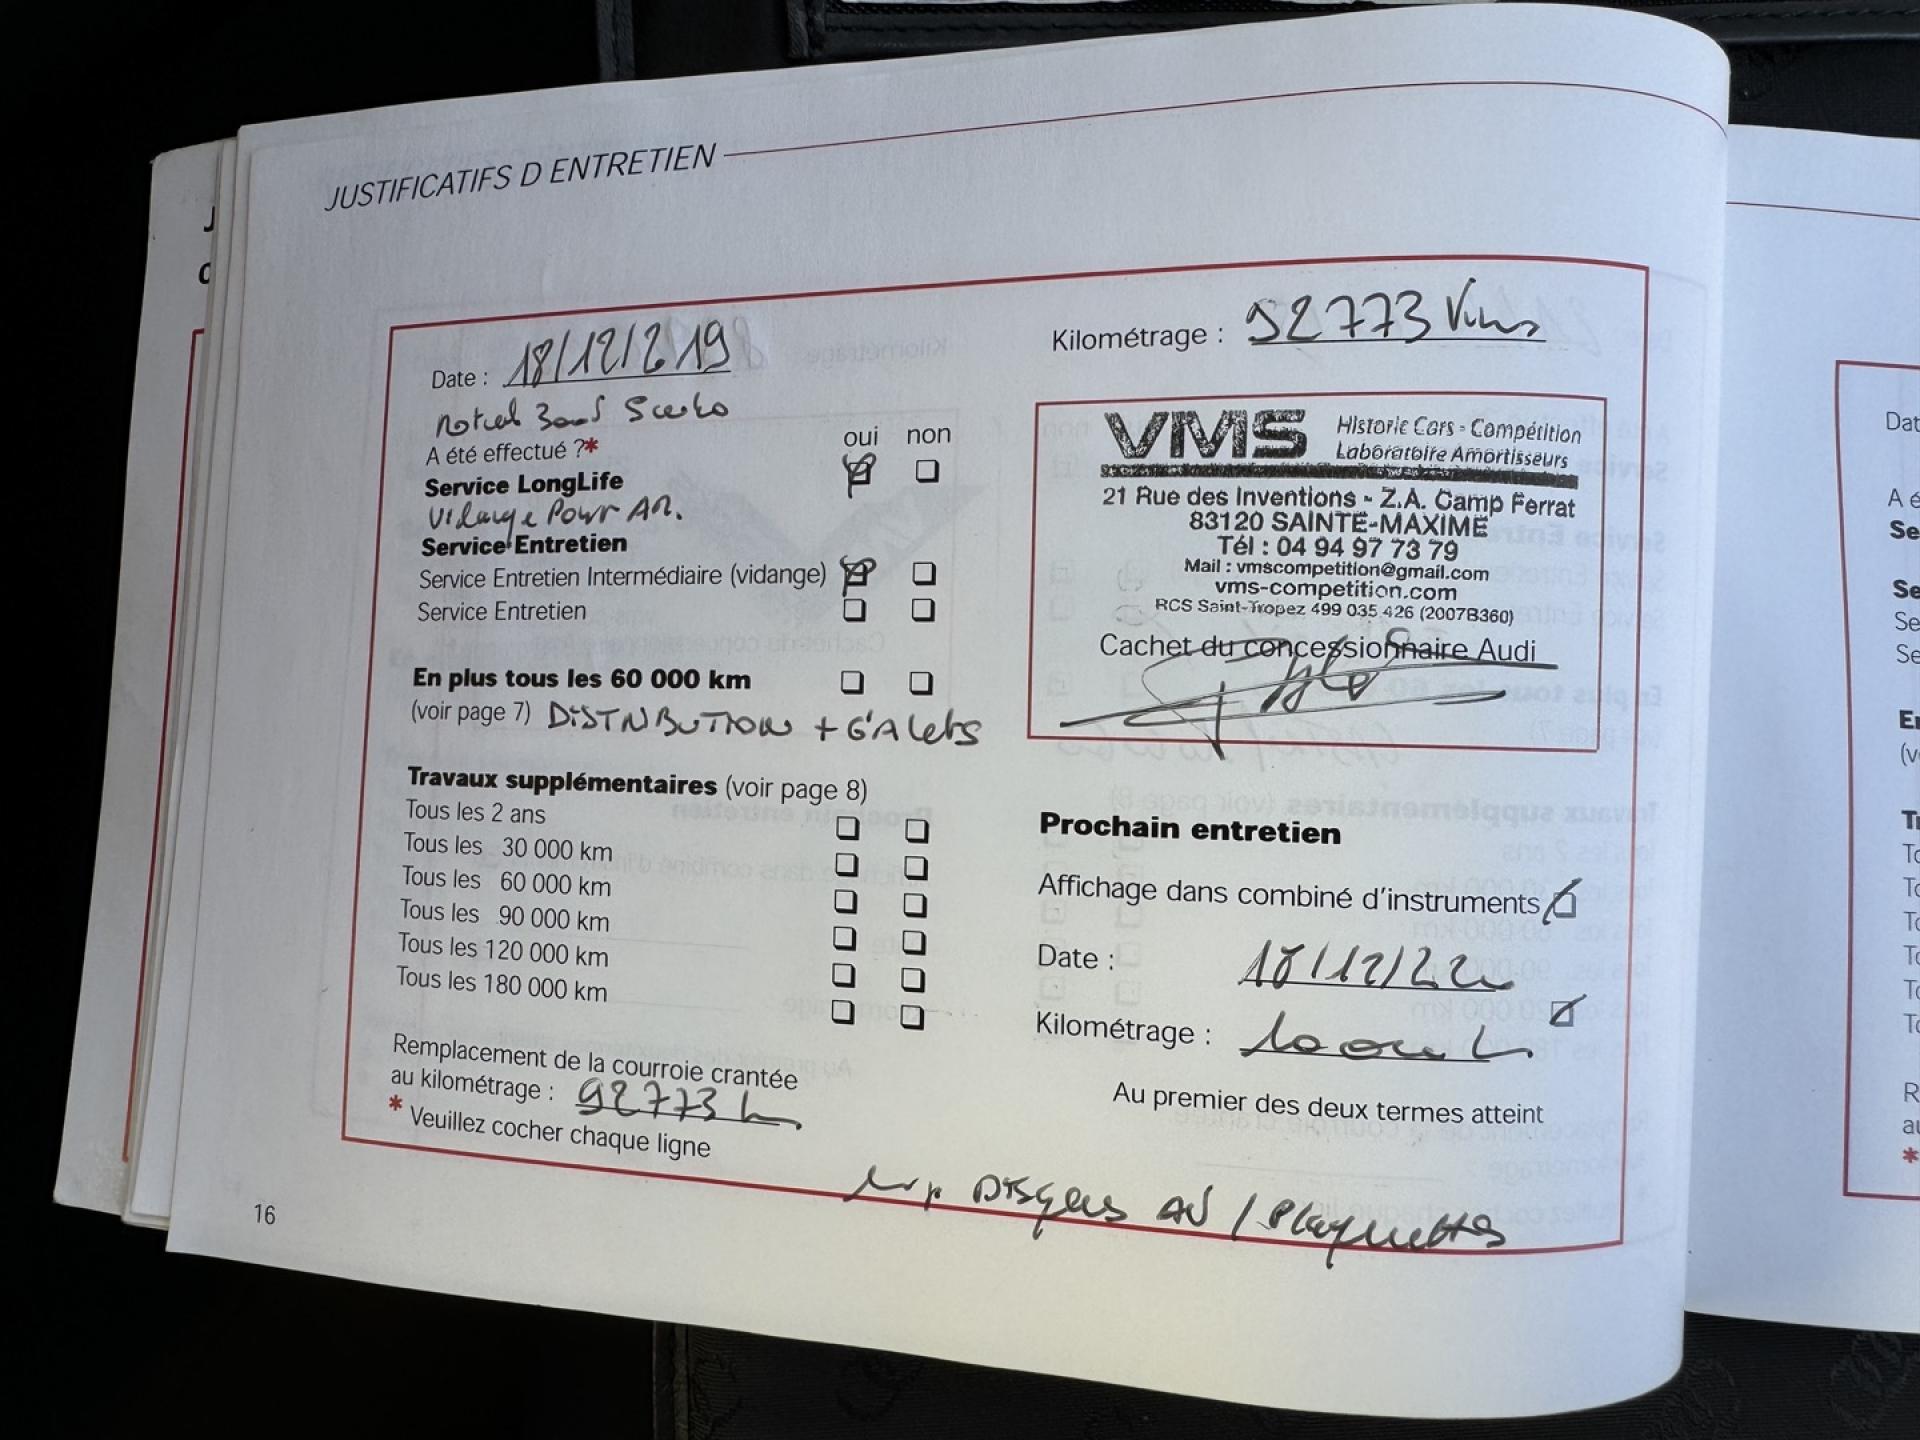 JUSTIFICATIFS D ENTRETIEN
Date : 18/12/219
Kilométrage : 92773
A été effectué ?*
oui non
Service LongLife
Vidange Pour AR.
Service Entretien
Service Entretien Intermédiaire (vidange)
Service Entretien
En plus tous les 60 000 km
(voir page 7) DISTRIBUTION + GALets
Travaux supplémentaires (voir page 8)
Tous les 2 ans
Tous les 30 000 km
Tous les 60 000 km
Tous les 90 000 km
Tous les 120 000 km
Tous les 180 000 km
Remplacement de la courroie crantée
au kilométrage : 92773 km
* Veuillez cocher chaque ligne
VMS Historic Cars - Compétition
Laboratoire Amortisseurs
21 Rue des Inventions - Z.A. Camp Ferrat
83120 SAINTE-MAXIME
Tél : 04 94 97 73 79
Mail : vmscompetition@gmail.com
vms-competition.com
RCS Saint-Tropez 499 035 426 (2007B360)
Cachet du concessionnaire Audi
Prochain entretien
Affichage dans combiné d'instruments
Date : 18/12/22
Kilométrage :
Au premier des deux termes atteint
DISQUES AV / Plaquettes
16
Dat
A é
Se
Se
Se
Se